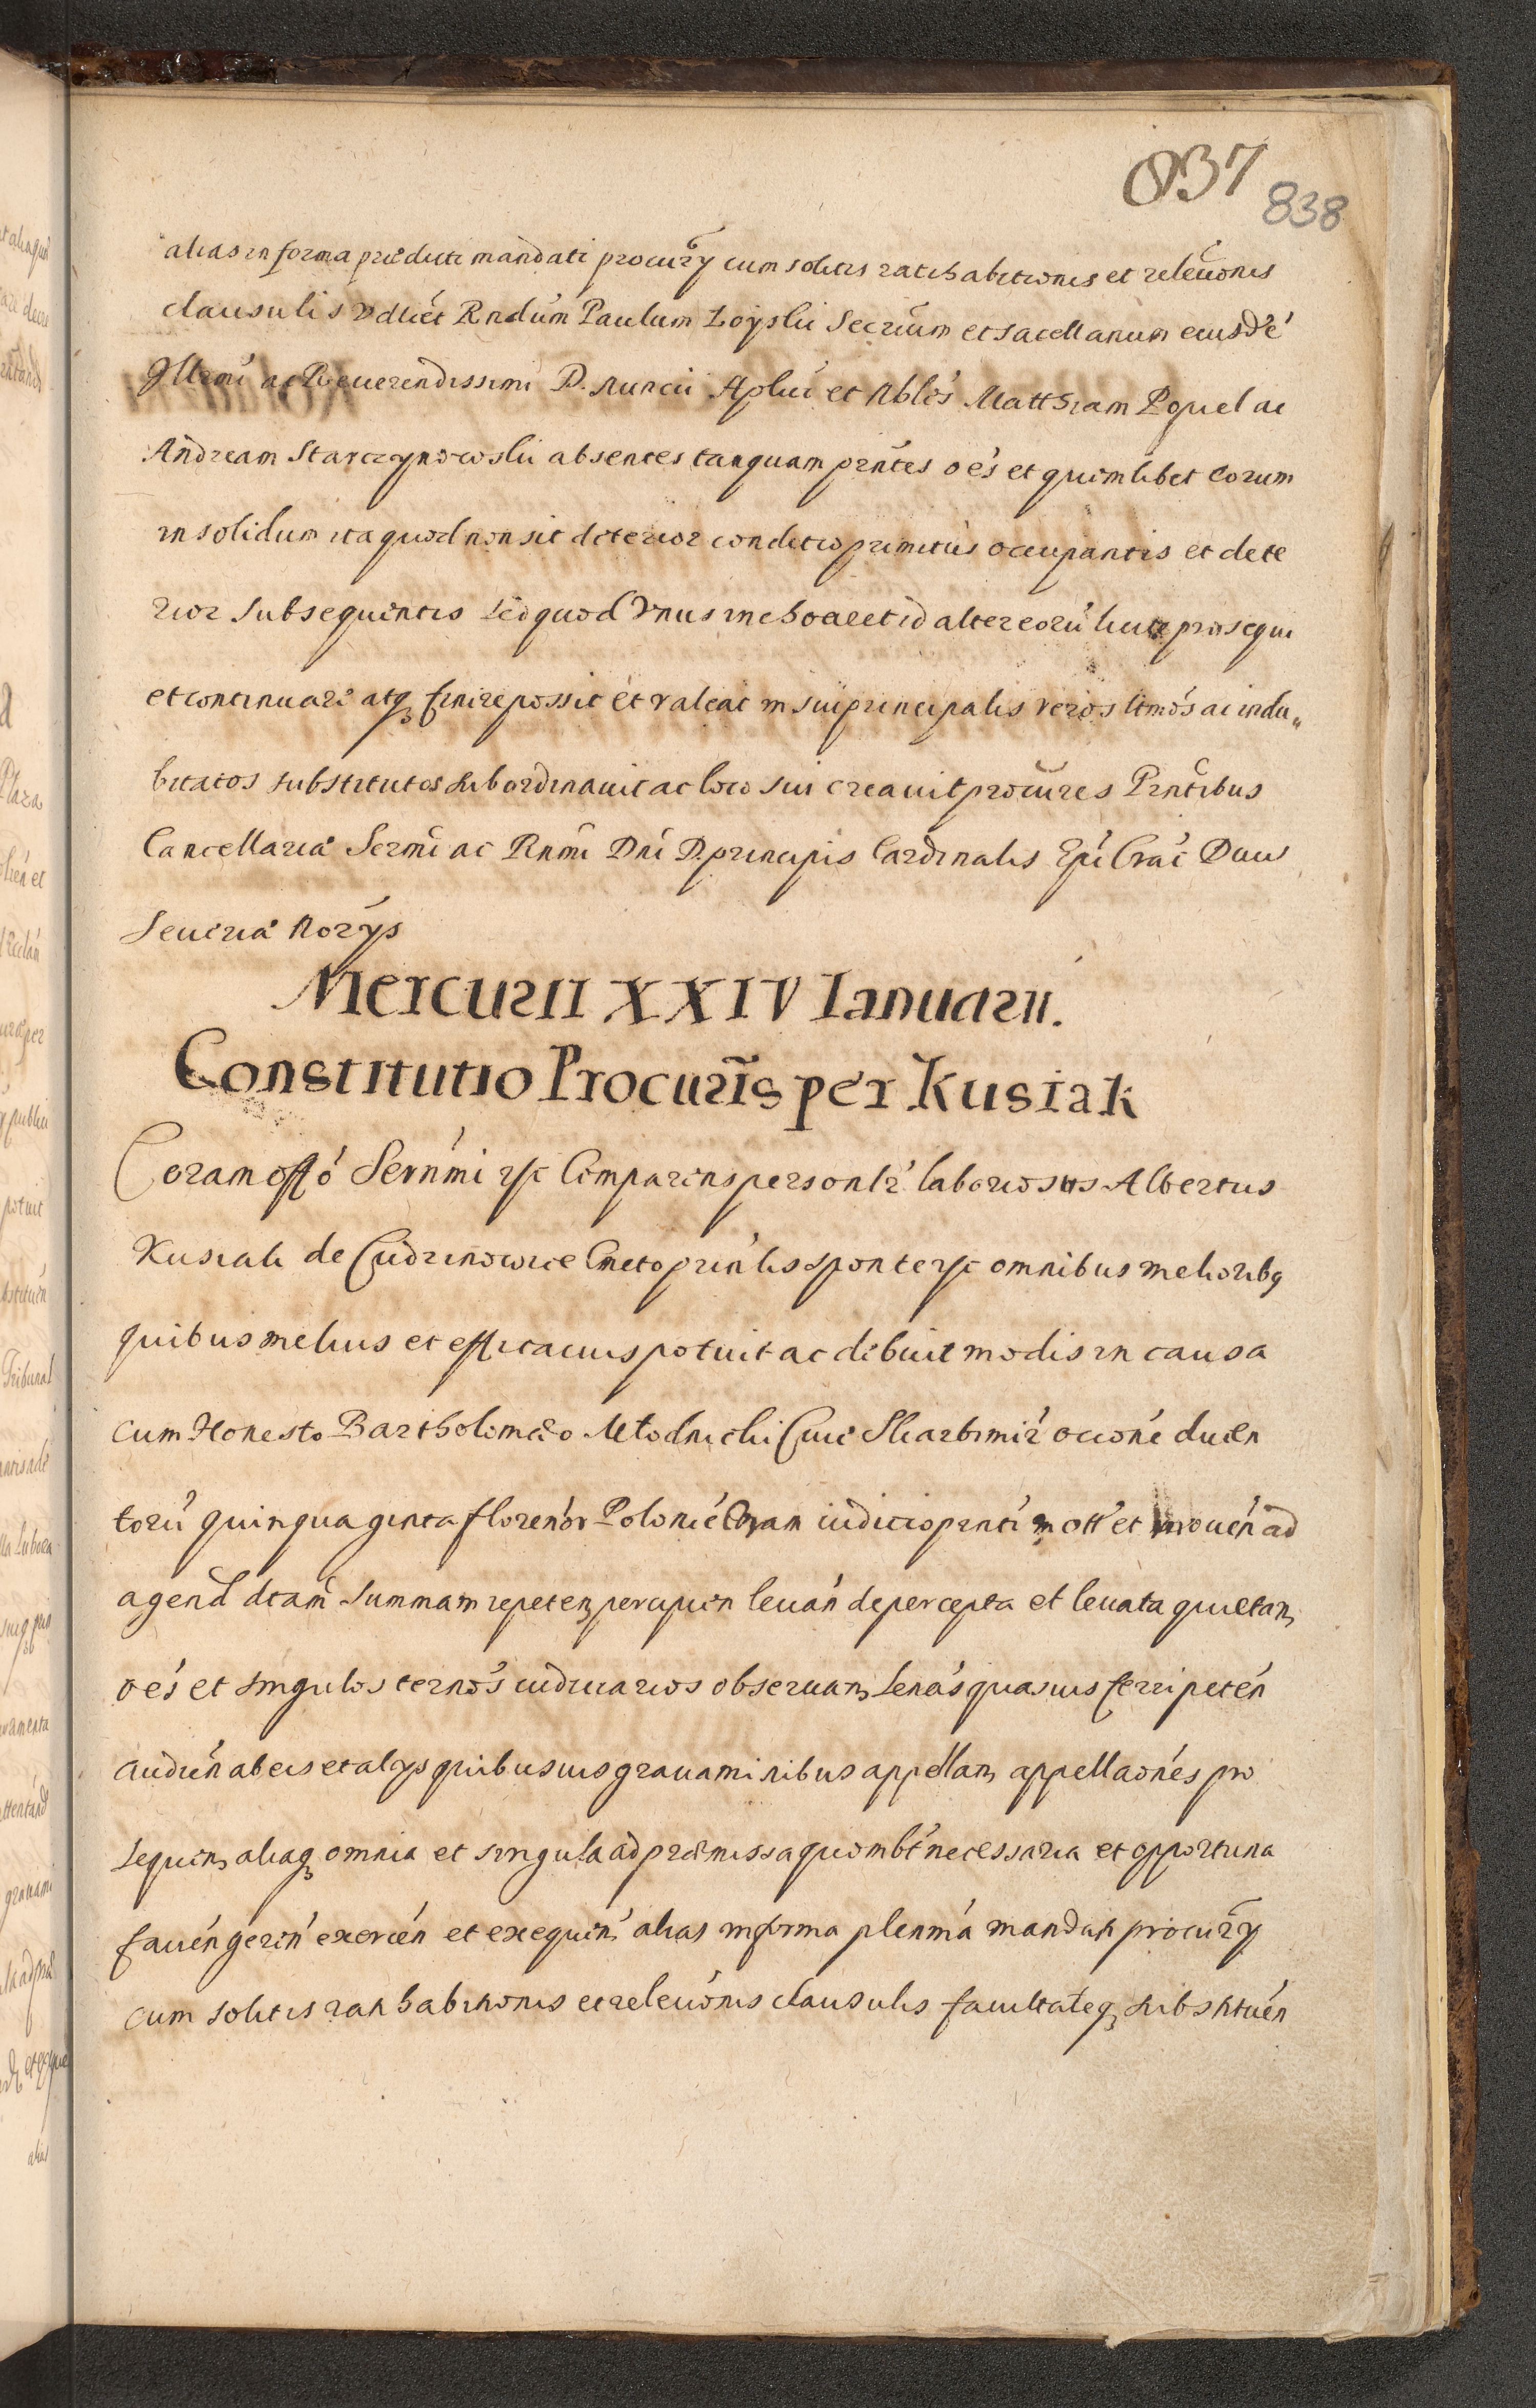 837
838
alias in forma prædicti mandati procur̃y cum solitis ratihabitionis et releuõnis
clausulis vdlićt Rndum Paulum Łoyski Secrium et sacellanum eiusdé
Illrmi ac Reuerendissimi D. Nuncii Aplici et Nbles Matthiam Popiel ac
Andream Starczynowski absentes tanquam prñtes oés et quemlibet eorum
in solidum ita quod non sit deterior conditio primitus occupantis et dete
rior subsequentis sed quod vnus inchoauet id alter eorũ prosequi
et continuare atq; finire possit et valeat in sui principalis veros ltmos ac indu„
bitatos substitutos subordinauit ac loco sui creauit procũres Prñtibus
Cancellariæ Sermi ac Rnmi Dni D. principis Cardinalis Epi Crać Ducis
Seueriæ Norys
Mercurii XXIV Ianuarii.
Constitutio Procuris per Kusiak
Coram offo Sernmi &c Comparens personlr laboriosus Albertus
Kusiak de Cudzinowice Cmeto prinlis sponte &c omnibus melioribq
quibus melius et efficacius potuit ac debuit modis in causa
cum Honesto Bartholomæo Młodnicki Ciue Skarbimir occone ducen
torũ quinquaginta florenor Polonic Coram iudicio prnti mott et mouen ad
agend dtam summam repeten, percipien leuan de percepta et leuata quietan,
oés et singulos ternos iudiciarios obseruan, Senas quasuis ferri peten
audien ab eis et alys quibusuis grauaminibus appellan, appellaones pro
sequen, aliaq; omnia et singula ad præmissa quomlbt necessaria et opportuna
facien geren exercen et exequen alias in forma plenma mandati procury
cum solitis ratihabitionis et releuonis clausulis facultateq; substituen